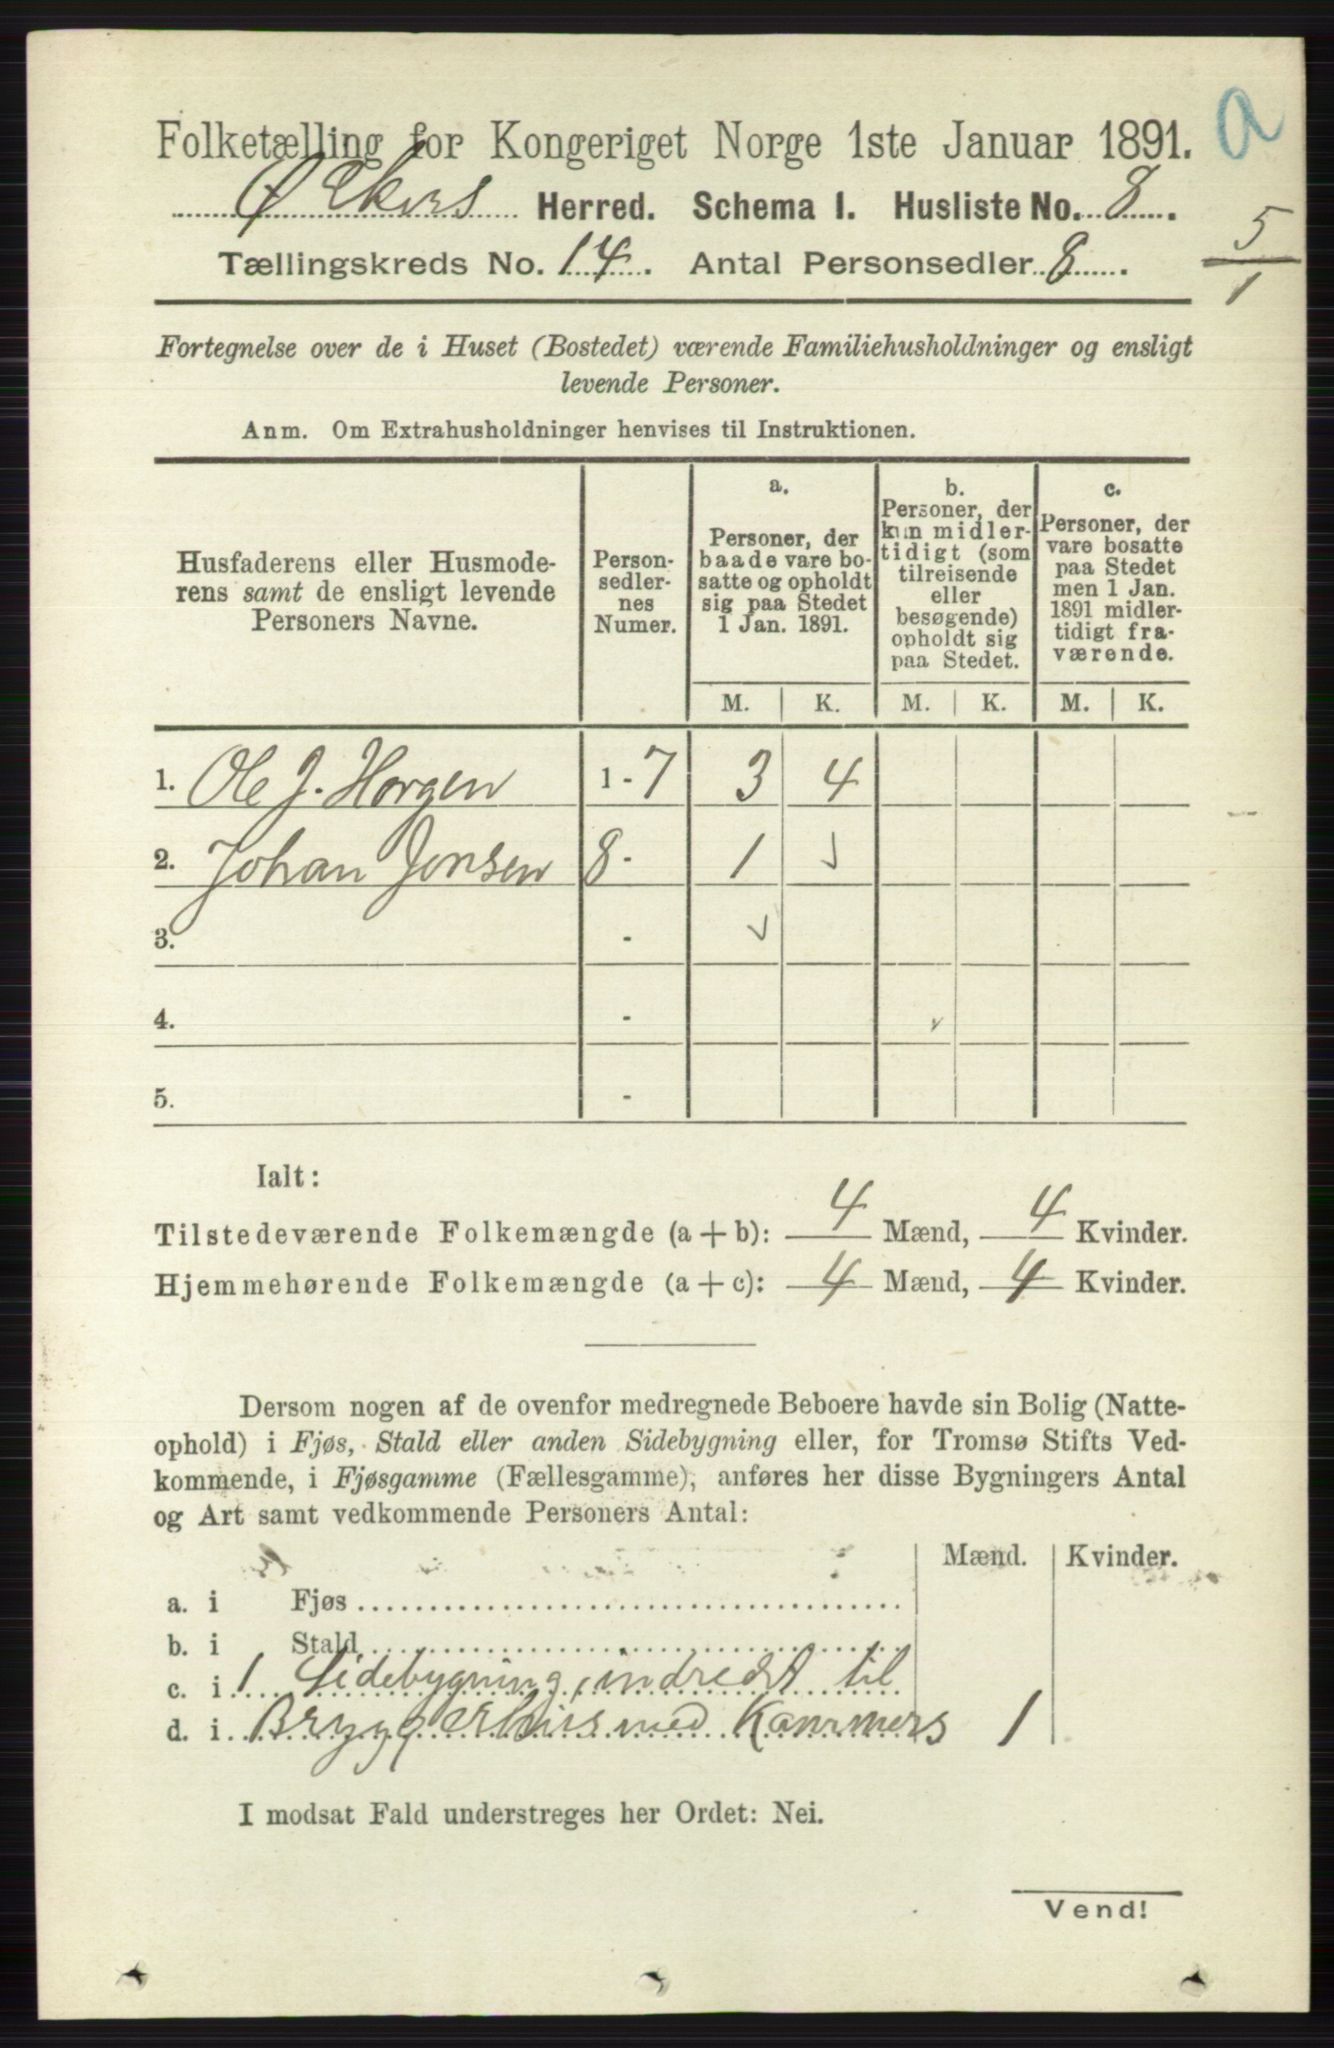 Folketælling for Kongeriget Norge 1ste Januar 1891.
a
Ø Ekers Herred. Schema I. Husliste No. 8.
Tællingskreds No. 14. Antal Personsedler 8.
5
1
Fortegnelse over de i Huset (Bostedet) værende Familiehusholdninger og ensligt
levende Personer.
Anm. Om Extrahusholdninger henvises til Instruktionen.
Husfaderens eller Husmode-
rens samt de ensligt levende
Personers Navne.
Person-
sedler-
nes
Numer.
a.
Personer, der
baade vare bo-
satte og opholdt
sig paa Stedet
1 Jan. 1891.
b.
Personer, der
kun midler-
tidigt (som
tilreisende
eller
besøgende)
opholdt sig
paa Stedet.
c.
Personer, der
vare bosatte
paa Stedet
men 1 Jan.
1891 midler-
tidigt fra-
værende.
M. K. M. K. M. K.
1. Ole J. Horgen 1 - 7 3 4
2. Johan Jonsen 8 - 1
3. -
4. -
5. -
Ialt:
Tilstedeværende Folkemængde (a + b): 4 Mænd, 4 Kvinder.
Hjemmehørende Folkemængde (a + c): 4 Mænd, 4 Kvinder.
Dersom nogen af de ovenfor medregnede Beboere havde sin Bolig (Natte-
ophold) i Fjøs, Stald eller anden Sidebygning eller, for Tromsø Stifts Ved-
kommende, i Fjøsgamme (Fællesgamme), anføres her disse Bygningers Antal
og Art samt vedkommende Personers Antal:
Mænd. Kvinder.
a. i Fjøs
b. i Stald
c. i 1 Sidebygning, indredt til
d. i Bryggerhus med Kammers 1
I modsat Fald understreges her Ordet: Nei.
Vend!